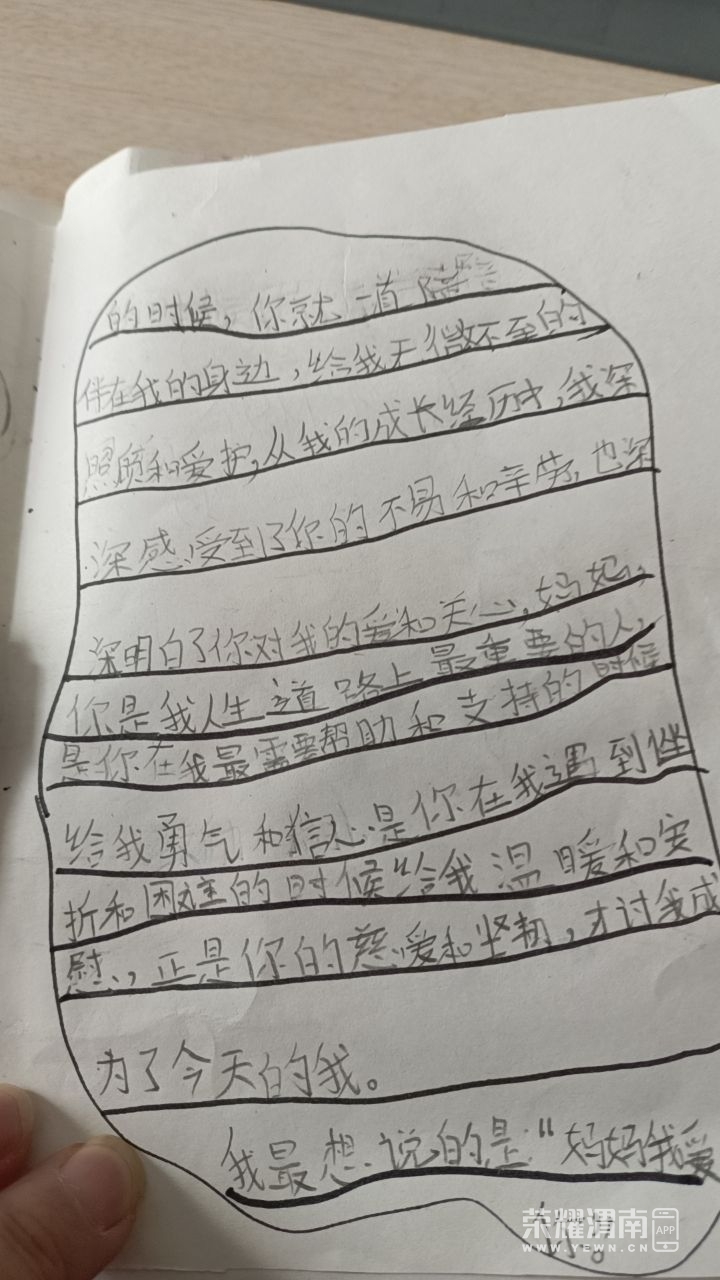 的时候，你就一直陪
伴在我的身边，给我无微不至的
照顾和爱护，从我的成长经历中，我深
深感受到了你的不易和辛劳，也深
深明白了你对我的爱和关心，妈妈，
你是我人生道路上最重要的人，
是你在我最需要帮助和支持的时候
给我勇气和信心是你在我遇到挫
折和困难的时候给我温暖和安
慰，正是你的慈爱和坚韧，才讨我成
为了今天的我。
我最想说的是："妈妈我爱
荣耀渭南 APP
WWW.YEWN.CN